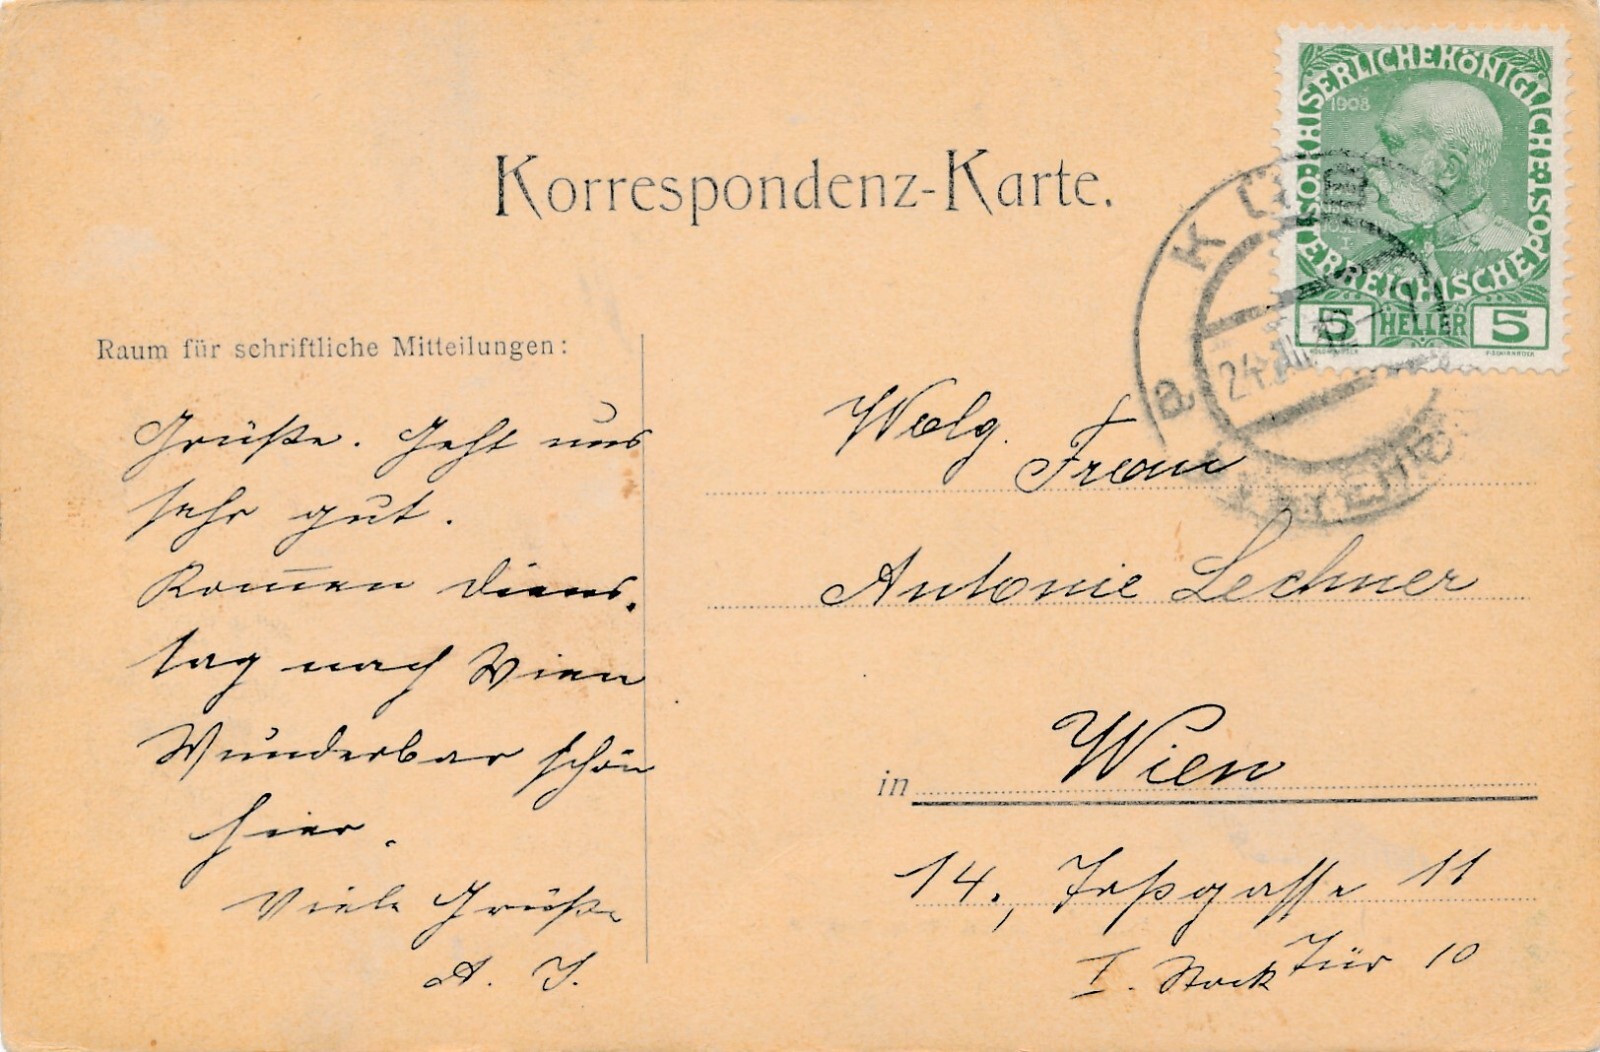 Korrespondenz-Karte.
KAISERLICHE KÖNIGLICHE ÖSTERREICHISCHE POST
1908
5 HELLER 5
24. VIII. 12
a
Raum für schriftliche Mitteilungen:
Grüße. Geht uns
sehr gut.
Kom̅en Diens.
tag nach Wien
Wunderbar schön
hier.
Viele Grüße
A. J.
Wolg. Frau
Antonie Lechner
in Wien
14., Goßgasse 11
I. Stock Tür 10